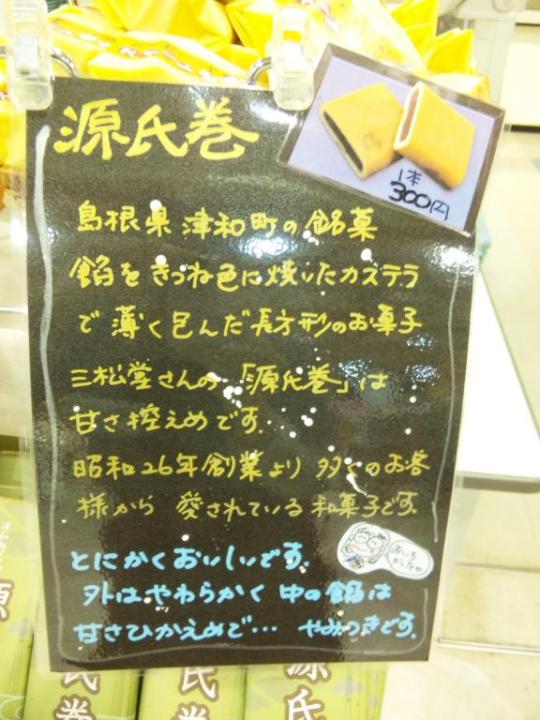 源氏巻
1本
300円
島根県津和町の銘菓
餡をきつね色に焼いたカステラ
で薄く包んだ長方形のお菓子
三松堂さんの「源氏巻」は
甘さ控えめです。
昭和26年創業より多くのお客
様から愛されている和菓子です。
とにかくおいしいです。
外はやわらかく中の餡は
甘さひかえめで…やみつきです。
源
氏巻
氏巻
源氏巻